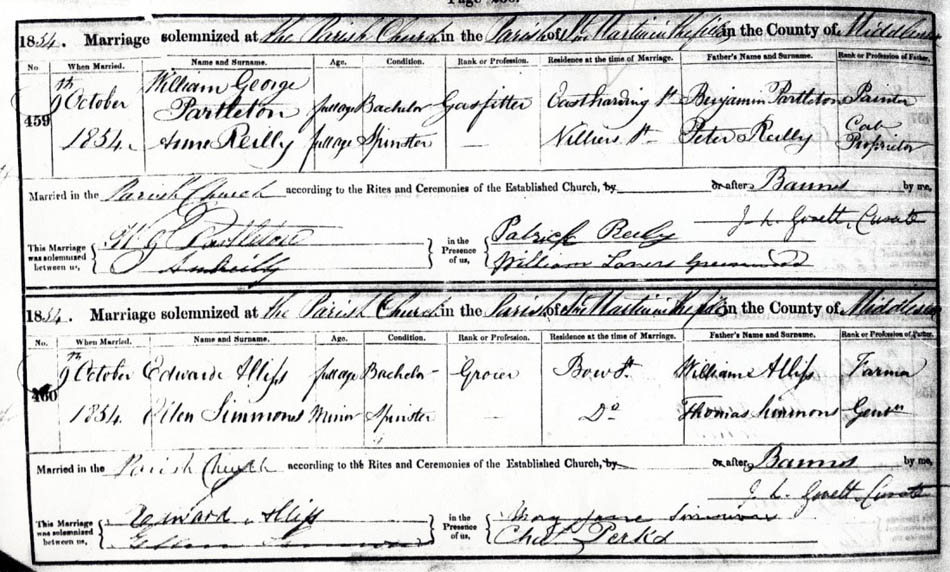 Page 230.
1854. Marriage solemnized at the Parish Church in the Parish of St Martin in the fields in the County of Middlesex
No. When Married. Name and Surname. Age. Condition. Rank or Profession. Residence at the time of Marriage. Father's Name and Surname. Rank or Profession of Father.
459 9th October 1854. William George Partleton full age Bachelor Gasfitter East Harding St Benjamin Partleton Painter
Anne Reilly full age Spinster — Villiers St Peter Reilly Cab Proprietor
Married in the Parish Church according to the Rites and Ceremonies of the Established Church, by or after Banns by me,
J. L. Curate
This Marriage was solemnized between us, W G Partleton in the Presence of us, Patrick Reily
An Reilly William Greenwood
1854. Marriage solemnized at the Parish Church in the Parish of St Martin in the fields in the County of Middlesex
No. When Married. Name and Surname. Age. Condition. Rank or Profession. Residence at the time of Marriage. Father's Name and Surname. Rank or Profession of Father.
460 9th October 1854. Edward Allifs full age Bachelor Grocer Bow St. William Allifs Farmer
Ellen Simmons Minor Spinster — Do Thomas Simmons
Married in the Parish Church according to the Rites and Ceremonies of the Established Church, by or after Banns by me,
J. L. Curate
This Marriage was solemnized between us, Edward Allifs in the Presence of us, Mary Jane Simmons
Ellen Simmons Chas Perks